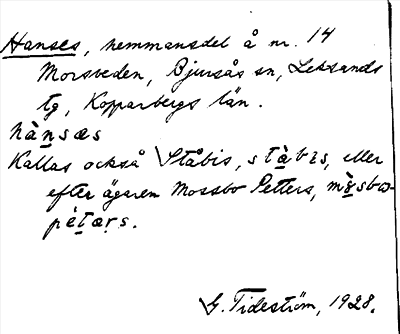 Hanses, hemmansdel å nr. 14
Morsveden, Bjursås sn, Leksands
tg, Kopparbergs län.
hànsæs
Kallas också Ståbis, stàbɪs, eller
efter ägaren Mossbo Petters,
pètæṛs.
G. Tideström, 1928.